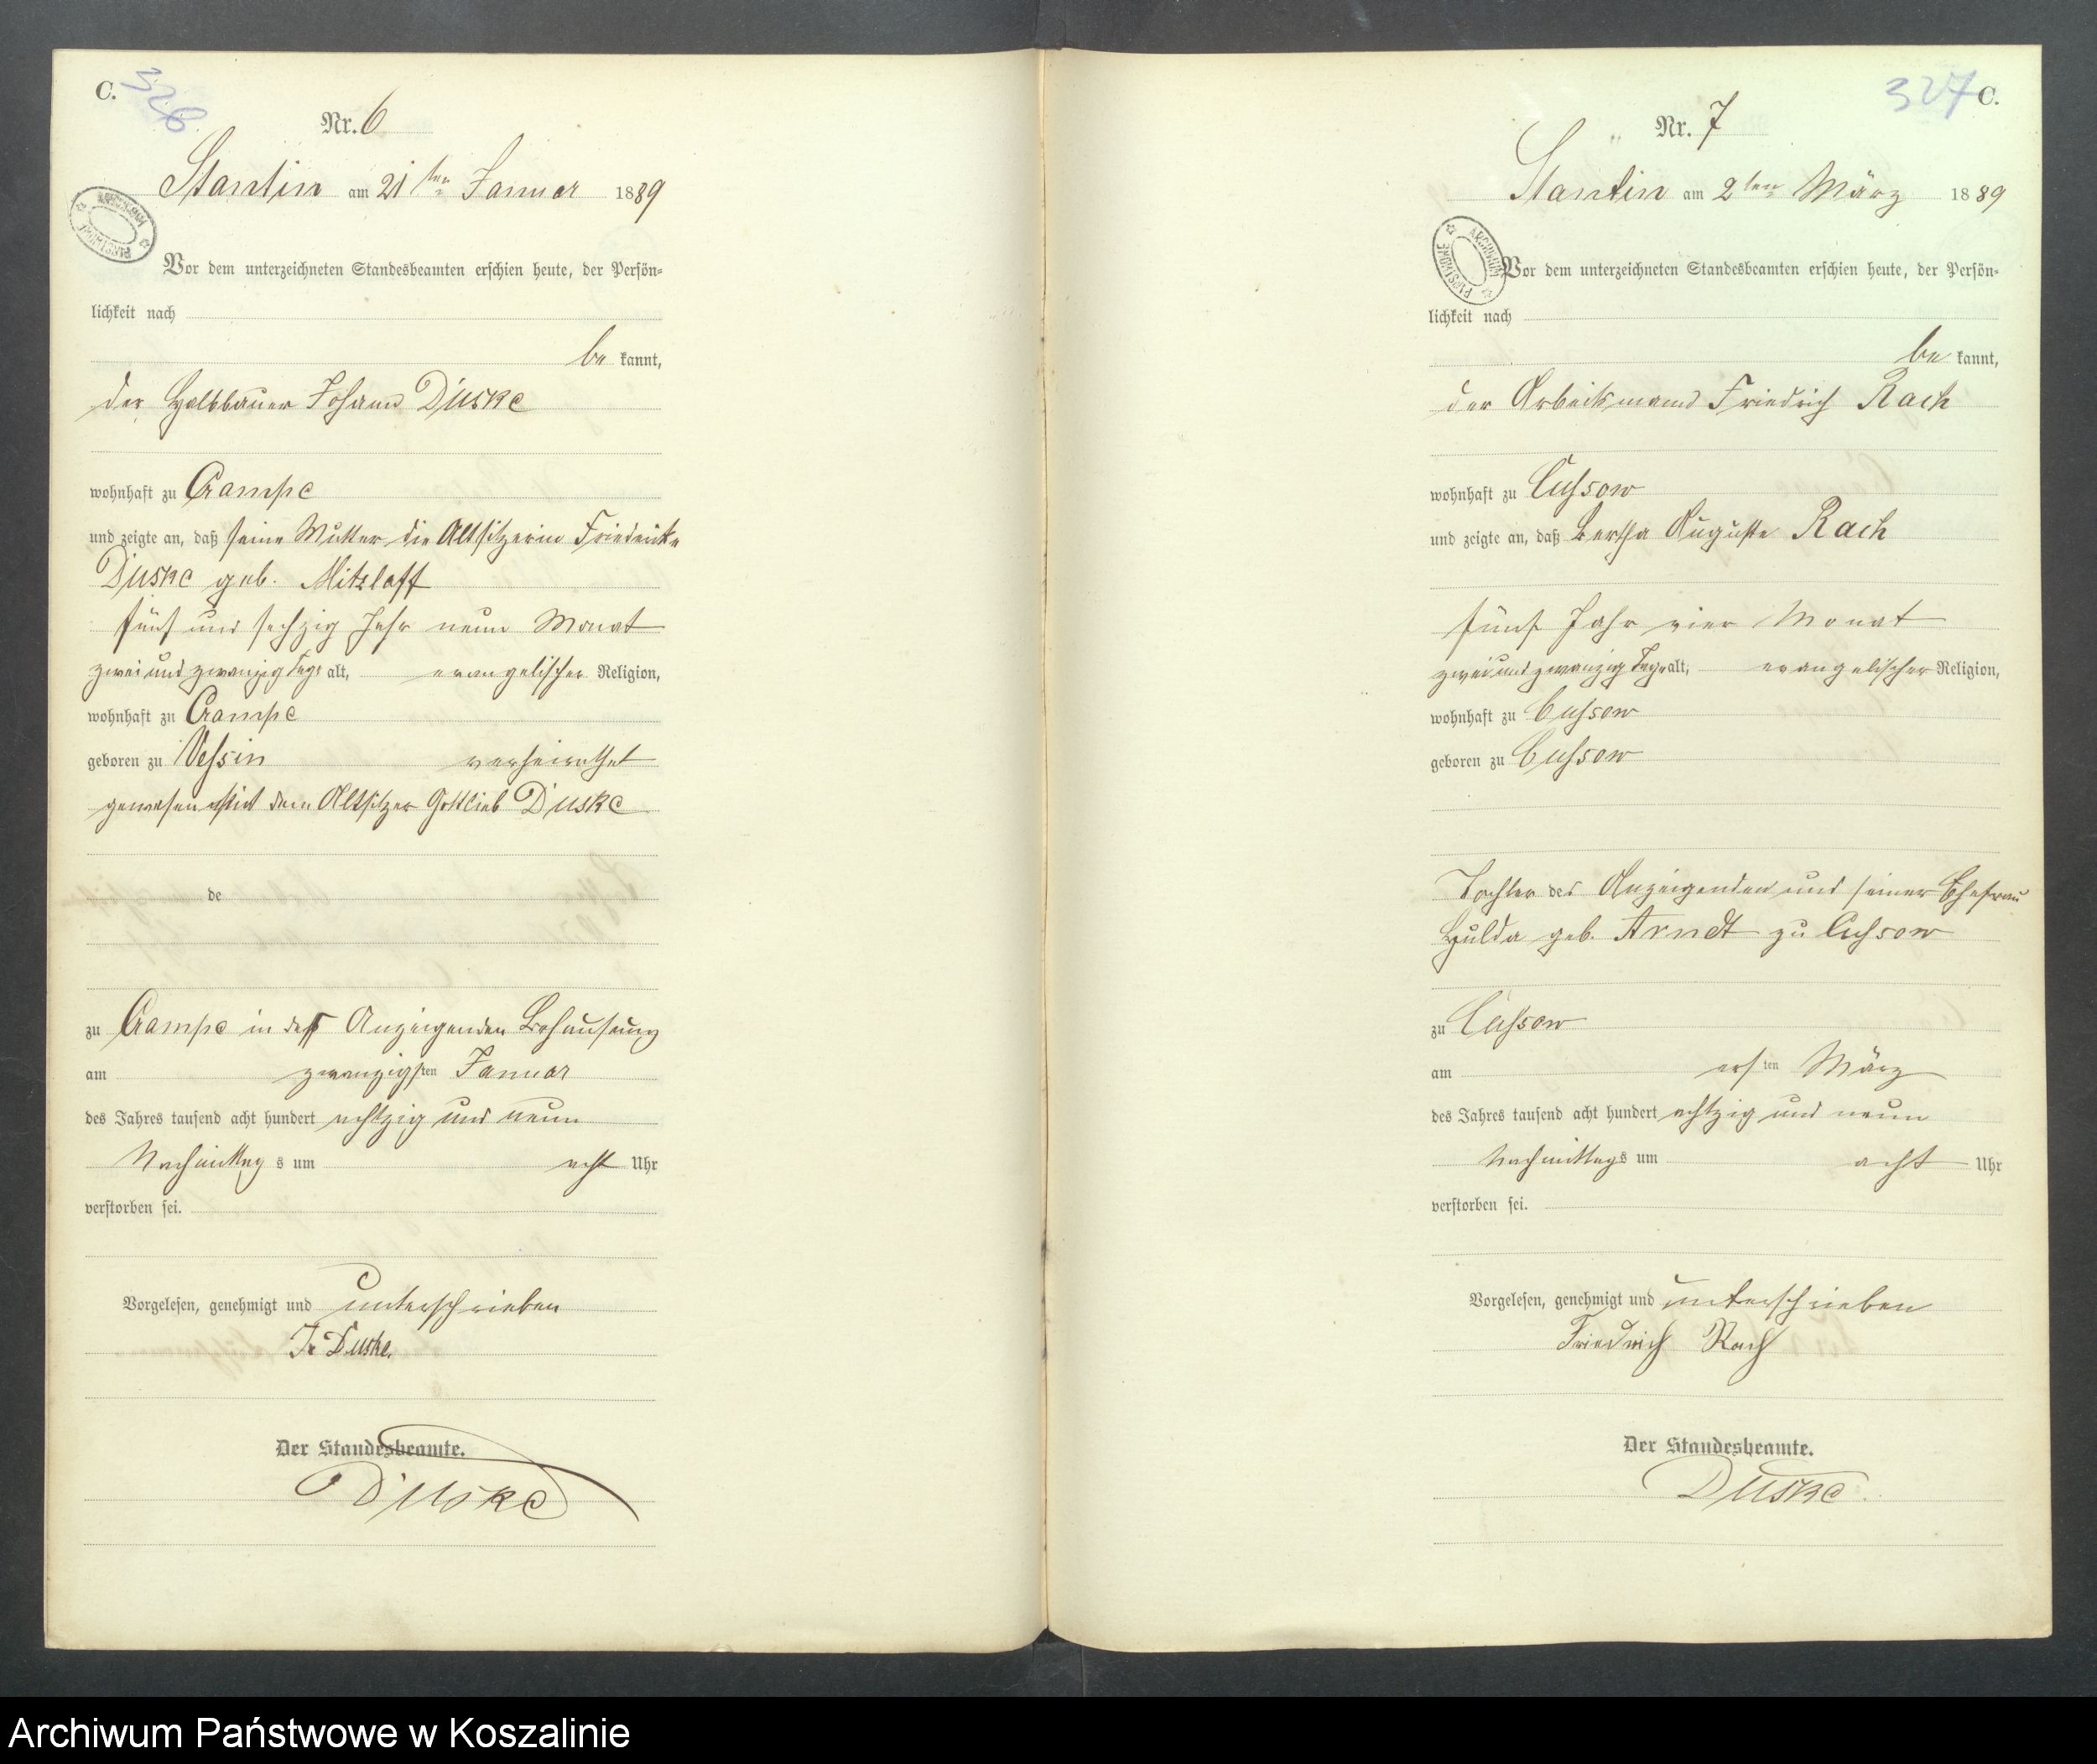 C.
326
Nr. 6
Stantin am 21ten Januar 1889
Vor dem unterzeichneten Standesbeamten erschien heute, der Persön-
lichkeit nach
be kannt,
der Halbbauer Johann Duske
wohnhaft zu Crampe
und zeigte an, daß seine Mutter die Altsitzerin Friederike
Duske geb. Mitzlaff
fünf und sechzig Jahr neun Monat
zwei und zwanzig Tage alt, evangelischer Religion,
wohnhaft zu Crampe
geboren zu Vessin verheirathet
gewesen mit dem Altsitzer Gottlieb Duske
de
zu Crampe in des Anzeigenden Behausung
am zwanzigsten Januar
des Jahres tausend acht hundert achtzig und neun
Nachmittag s um acht Uhr
verstorben sei.
Vorgelesen, genehmigt und unterschrieben
Duske.
Der Standesbeamte.
Duske
ARCHIWUM PAŃSTWOWE
327 C.
Nr. 7
Stantin am 2ten März 1889
Vor dem unterzeichneten Standesbeamten erschien heute, der Persön-
lichkeit nach
be kannt,
der Arbeitsmann Friedrich Rach
wohnhaft zu Cussow
und zeigte an, daß Bertha Auguste Rach
fünf Jahr vier Monat
zwei und zwanzig Tage alt, evangelischer Religion,
wohnhaft zu Cussow
geboren zu Cussow
Tochter des Anzeigenden und seiner Ehefrau
Hulda geb. Arndt zu Cussow
zu Cussow
am ersten März
des Jahres tausend acht hundert achtzig und neun
Nachmittags um acht Uhr
verstorben sei.
Vorgelesen, genehmigt und unterschrieben
Friedrich Rach
Der Standesbeamte.
Duske
ARCHIWUM PAŃSTWOWE
Archiwum Państwowe w Koszalinie